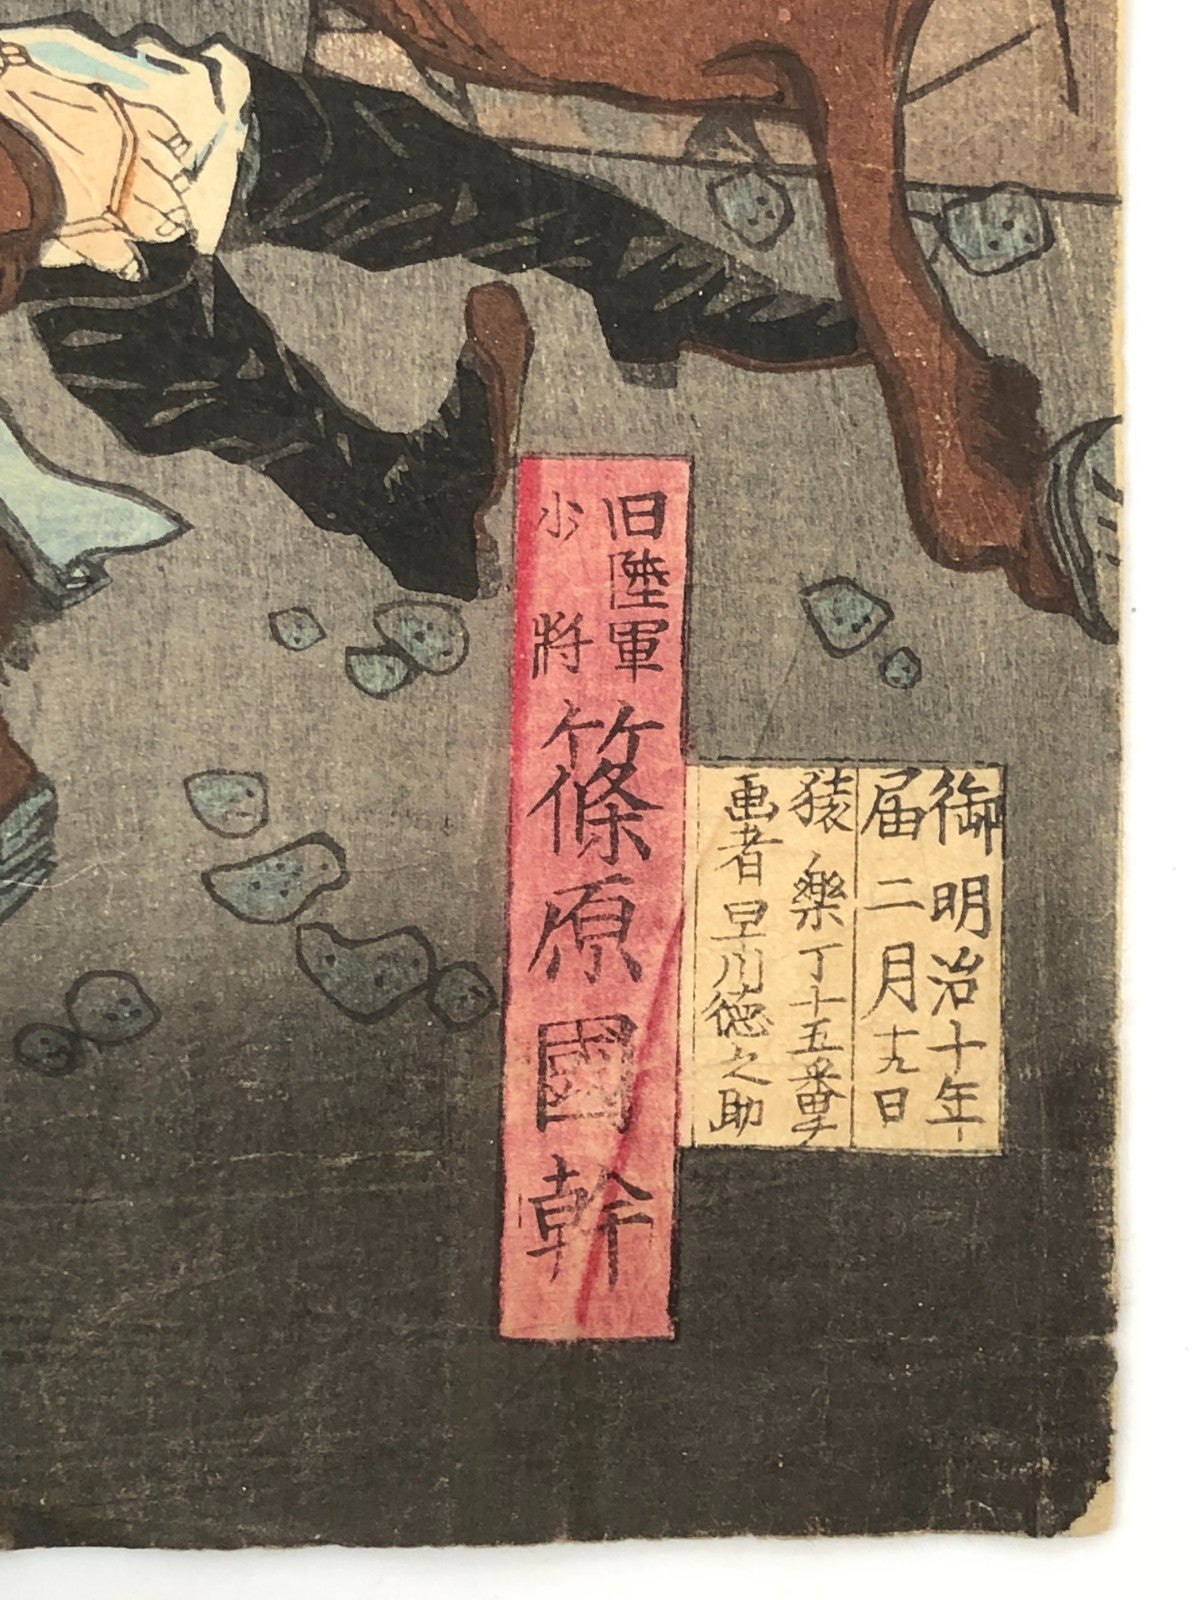 御明治十年
届二月十九日
猿樂丁十五番地
画者早川徳之助
旧陸軍
少将
篠原國幹